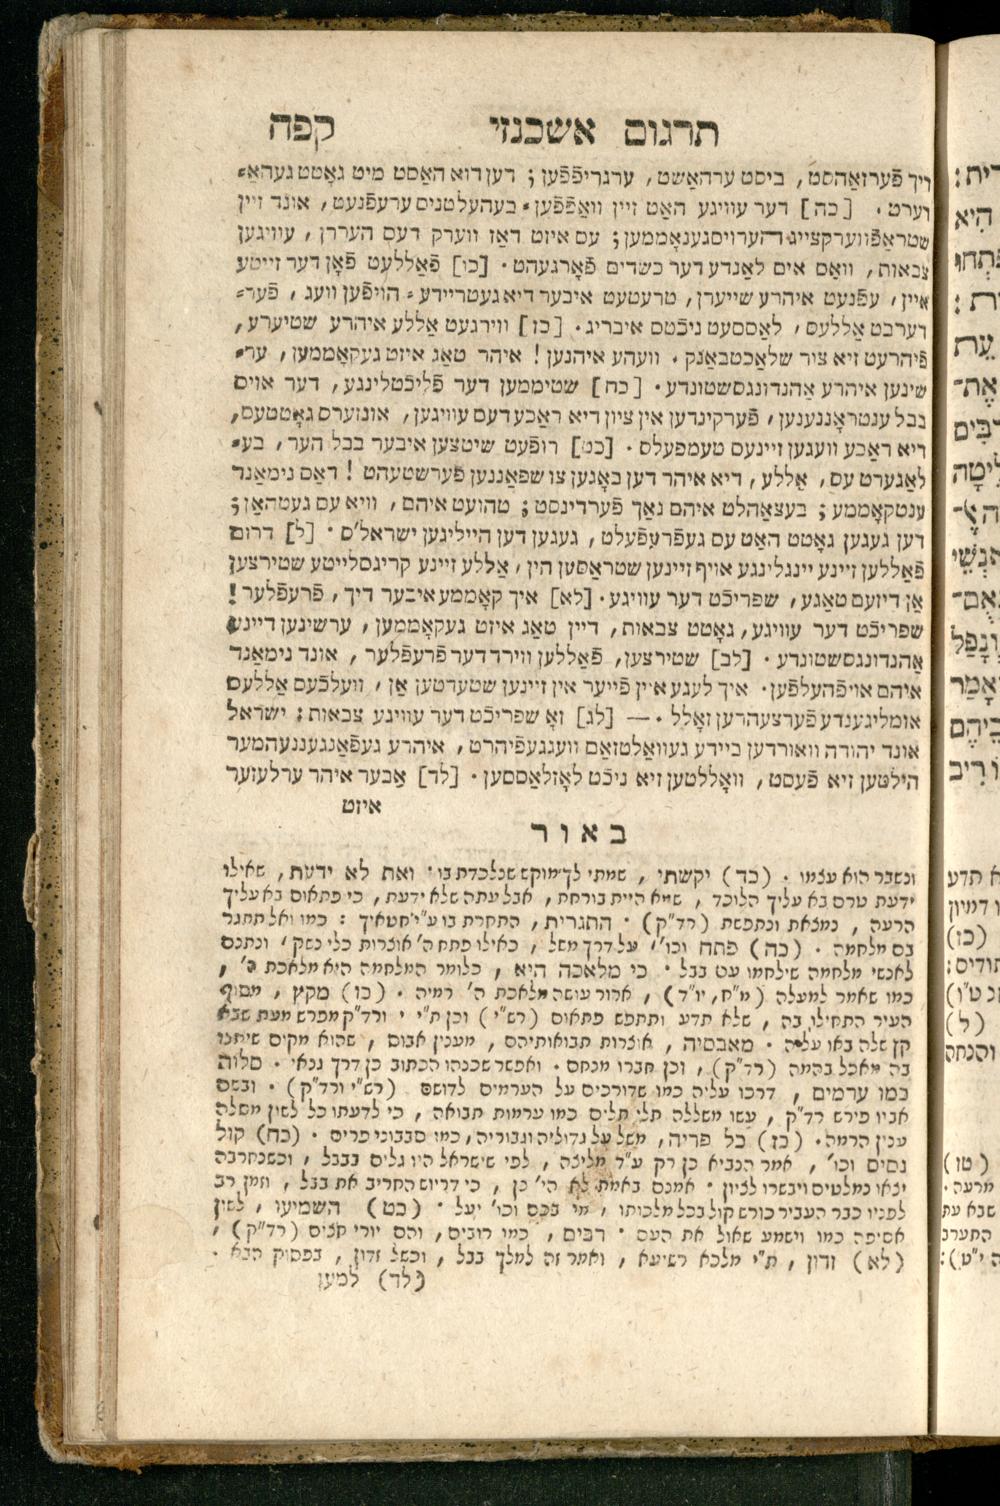 תרגום אשכנזי קפה
דיך פֿערזאַהסט, ביסט ערהאַשט, ערגריפֿפֿען; דען דוא האַסט מיט גאָטט געהאַ=
דערט. [כה] דער עוויגע האַט זיין וואַפֿפֿען=בעהעלטניס ערעפֿנעט, אונד זיין
שטראַפֿווערקצייג הערויסגענאָממען; עס איזט דאַז ווערק דעס העררן, עוויגען
צבאות, וואַס אים לאַנדע דער כשדים פֿאָרגעהט. [כו] פֿאַללעט פֿאָן דער זייטע
איין, עפֿנעט איהרע שייערן, טרעטעט איבער דיא געטריידע=הויפֿען וועג, פֿער=
דערבט אַללעס, לאַססעט ניכֿטס איבריג. [כז] ווירגעט אַללע איהרע שטיערע,
פֿיהרעט זיא צור שלאַכטבאַנק. וועהע איהנען! איהר טאַג איזט געקאָממען, ער=
שינען איהרע אַהנדונגסשטונדע. [כח] שטיממען דער פֿליכֿטלינגע, דער אויס
בבל ענטראָננענען, פֿערקינדען אין ציון דיא ראַכע דעס עוויגען, אונזערס גאָטטעס,
דיא ראַכע וועגען זיינעס טעמפעלס. [כט] רופֿעט שיטצען איבער בבל הער, בע=
לאַגערט עס, אַללע, דיא איהר דען באָגען צו שפאַננען פֿערשטעהט! דאַס נימאַנד
ענטקאָממע; בעצאַהלט איהם נאָך פֿערדינסט; טהועט איהם, וויא עס געטהאַן;
דען געגען גאָטט האַט עס געפֿרעפֿעלט, געגען דען הייליגען ישראל'ס. [ל] דרום
פֿאַללען זיינע יינגלינגע אויף זיינען שטראַסען הין, אַללע זיינע קריגסלייטע שטירצען
אַן דיזעם טאַגע, שפריכֿט דער עוויגע. [לא] איך קאָממע איבער דיך, פֿרעפֿלער!
שפריכֿט דער עוויגע, גאָטט צבאות, דיין טאַג איזט געקאָממען, ערשינען דיינע
אַהנדונגסשטונדע. [לב] שטירצען, פֿאַללען ווירד דער פֿרעפֿלער, אונד נימאַנד
איהם אויפֿהעלפֿען. איך לעגע איין פֿייער אין זיינען שטעדטען אַן, וועלכֿעס אַללעס
אומליגענדע פֿערצעהרען זאָלל. — [לג] זאָ שפריכֿט דער עוויגע צבאות: ישראל
אונד יהודה וואורדען ביידע געוואַלטזאַם וועגגעפֿיהרט, איהרע געפֿאַנגעננעהמער
הילטען זיא פֿעסט, וואָללטען זיא ניכֿט לאָזלאַססען. [לד] אַבער איהר ערלעזער
איזט
באור
ונשבר הוא עצמו. (כד) יקשתי, שמתי לך מוקש שנלכדת בו. ואת לא ידעת, שאילו
ידעת טרם בא עליך הלוכד, שמא היית בורחת, אבל עתה שלא ידעת, כי פתאום בא עליך
הרעה, נמצאת ונתפשת (רד"ק). התגרית, התחרת בו ע"י חטאיך: כמו ואל תתגר
בם מלחמה. (כה) פתח וכו', על דרך משל, כאילו פתח ה' אוצרות כלי נשק, ונתנם
לאנשי מלחמה שילחמו עם בבל. כי מלאכה היא, כלומר המלחמה היא מלאכת ה',
כמו שאמר למעלה (מ"ח, יו"ד), ארור עושה מלאכת ה' רמיה. (כו) מקץ, מסוף
העיר התחילו בה, שלא תדע ותתפש פתאום (רש"י) וכן ת"י, ורד"ק מפרש מעת שבא
קץ שלה באו עליה. מאבסיה, אוצרות תבואותיהם, מענין אבוס, שהוא מקום שיתנו
בה מאכל בהמה (רד"ק), וכן חברו מנחם. ואפשר שכנהו הכתוב כן דרך גנאי. סלוה
כמו ערמים, דרכו עליה כמו שדורכים על הערמים לדושם (רש"י ורד"ק). ובשם
אביו פירש רד"ק, עשו משללה תלי תלים כמו ערמות תבואה, כי לדעתו כל לשון מסלה
ענין הרמה. (כז) כל פריה, משל על גדוליה וגבוריה, כמו סבבוני פרים. (כח) קול
נסים וכו', אמר הנביא כן רק ע"ד מליצה, לפי שישראל היו גלים בבבל, וכשנחרבה
יצאו נמלטים ויבשרו לציון. אמנם באמת לא הי' כן, כי דריוש החריב את בבל, וזמן רב
לפניו כבר העביר כורש קול בכל מלכותו, מי בכם וכו' יעל. (כט) השמיעו, לשון
אסיפה כמו וישמע שאול את העם. רבים, כמו רובים, והם יורי חצים (רד"ק),
(לא) זדון, ת"י מלכא רשיעא, ואמר זה למלך בבל, וכשל זדון, בפסוק הבא.
(לד) למען